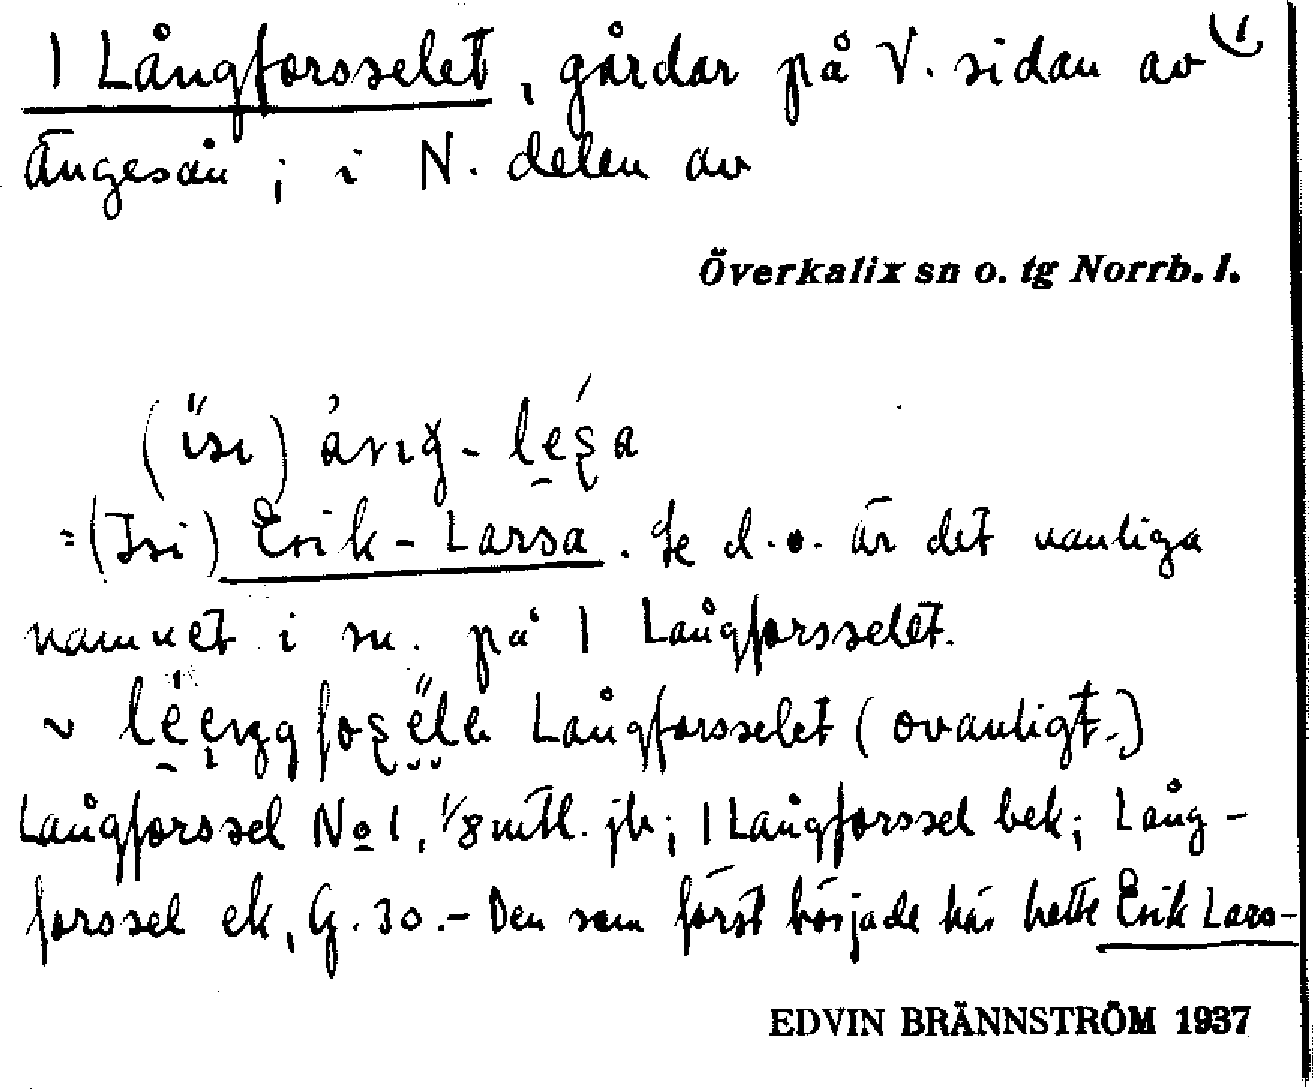 1 Långforsselet, gårdar på V. sidan av 1)
Ängesån; i N. delen av
Överkalix sn o. tg Norrb. l.
=(Isi) Erik-Larsa. Se d.o. är det vanliga
namnet i sn. på 1 Långforsselet.
~ Långforsselet (ovanligt.)
Långforssel No 1, 1/8 mtl. jb; 1 Långforssel bek; Lång-
forssel ek, G. 30.- Den som först började här hette Erik Lars-
EDVIN BRÄNNSTRÖM 1937